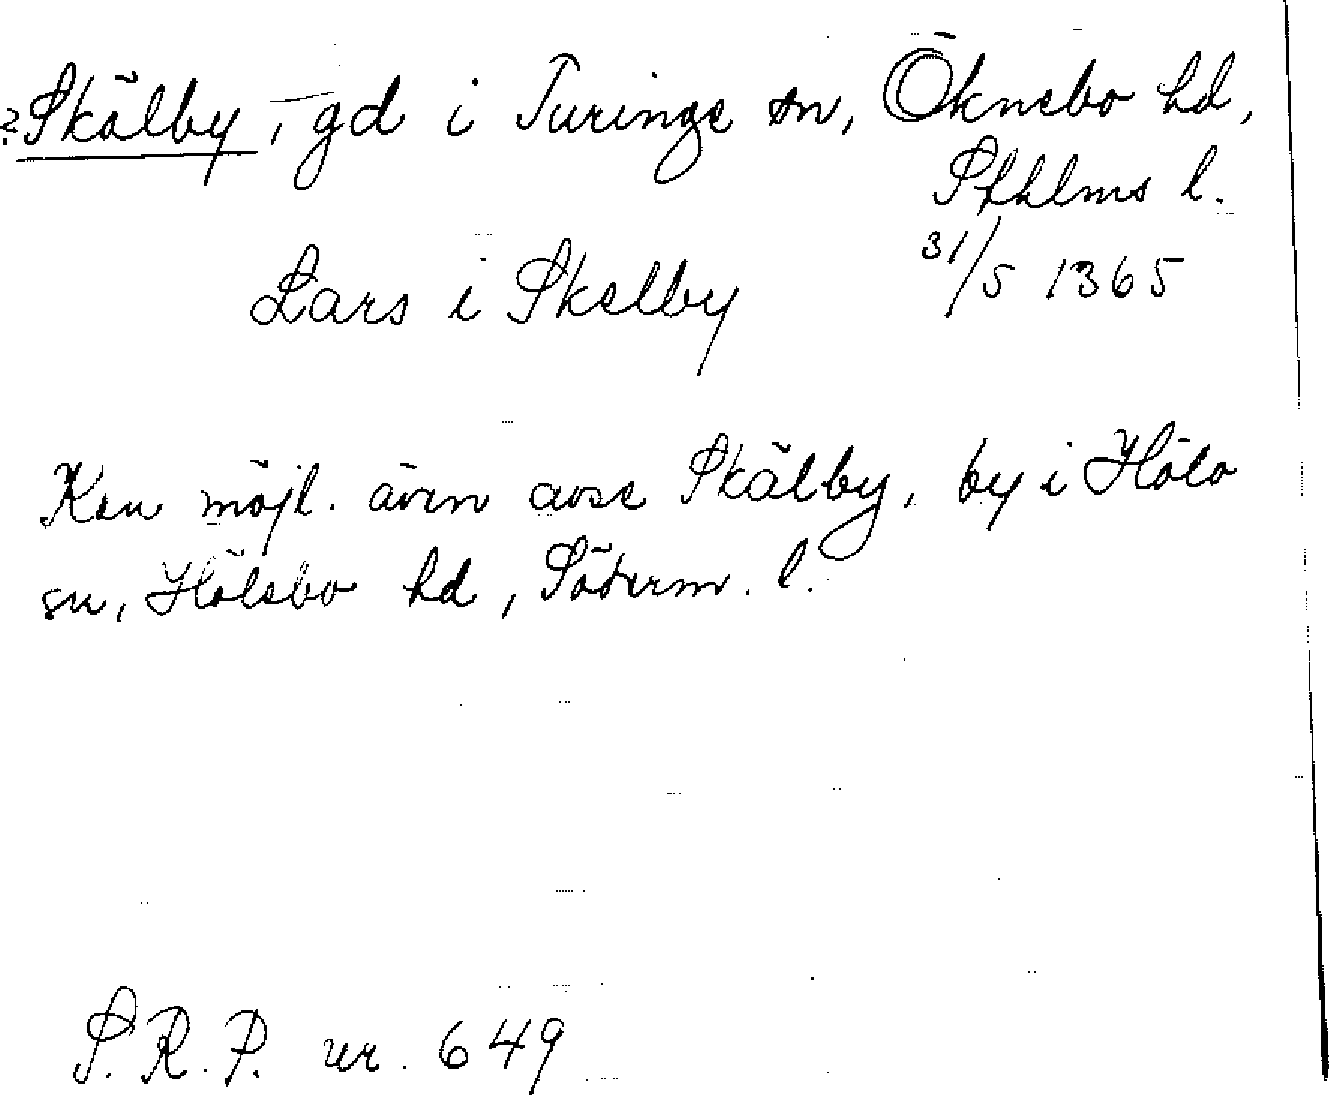 ?Skälby, gd i Turinge sn, Öknebo hd,
Sthlms l.
Lars i Skelby 31/5 1365
Kan möjl. även avse Skälby, by i Hölö
sn, Hölebo hd, Söderm. l.
S.R.P. nr. 649